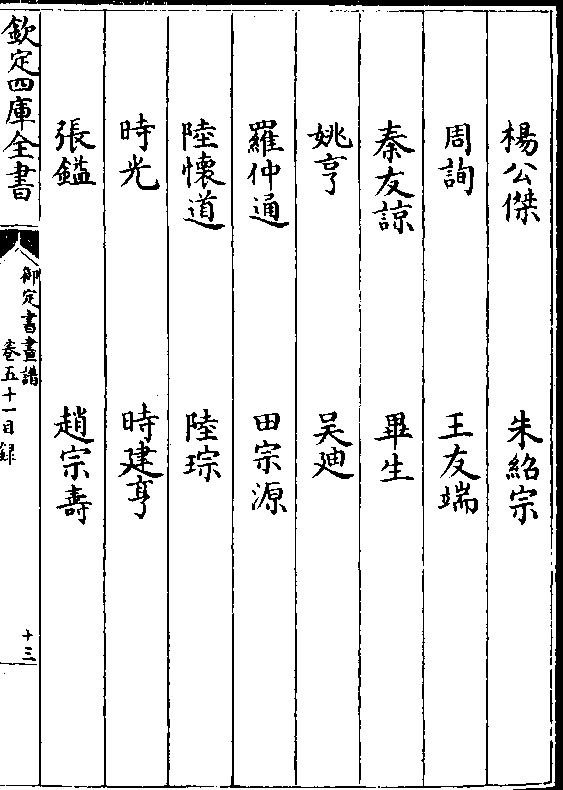 楊公傑 朱紹宗
周詢 王友端
秦友諒 畢生
姚亨 吴廸
羅仲通 田宗源
陸懷道 陸琮
時光 時建亨
張鎰 趙宗壽
欽定四庫全書
御定書畫譜
卷五十一目録
十三